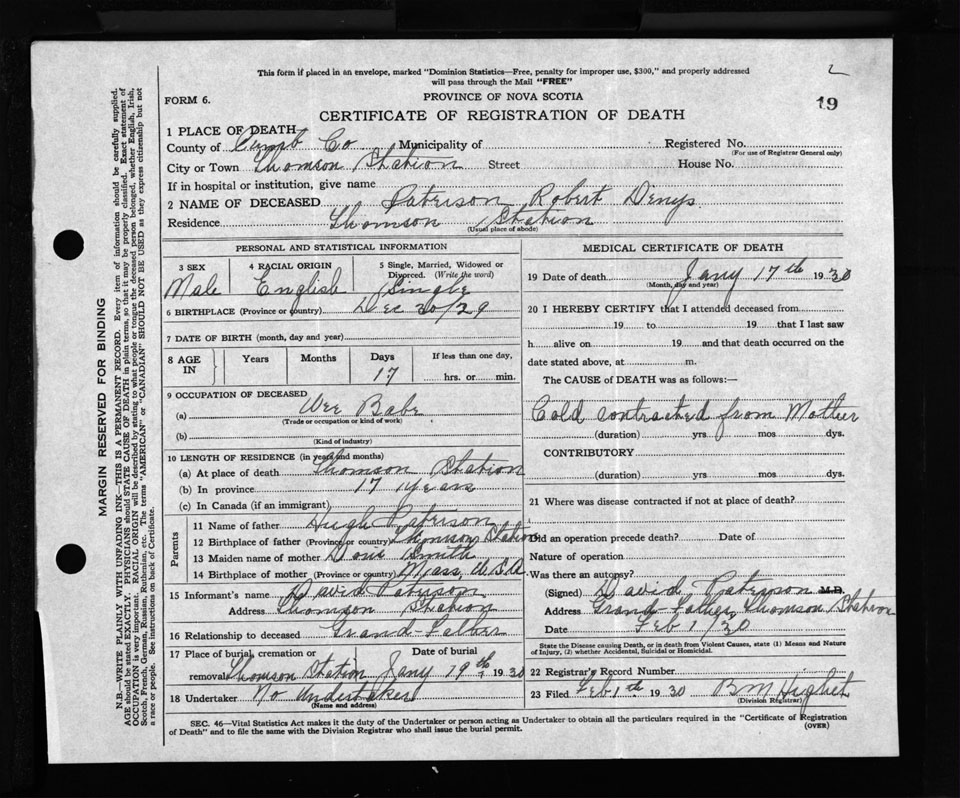 2
This form if placed in an envelope, marked "Dominion Statistics—Free, penalty for improper use, $300," and properly addressed
will pass through the Mail "FREE"
FORM 6.
PROVINCE OF NOVA SCOTIA
19
CERTIFICATE OF REGISTRATION OF DEATH
1 PLACE OF DEATH
County of Cumb Co Municipality of Registered No.
(For use of Registrar General only)
City or Town Thomson Station Street House No.
If in hospital or institution, give name
2 NAME OF DECEASED Paterson Robert Denys
Residence Thomson Station
(Usual place of abode)
PERSONAL AND STATISTICAL INFORMATION
3 SEX 4 RACIAL ORIGIN 5 Single, Married, Widowed or
Divorced. (Write the word)
Male English Single
6 BIRTHPLACE (Province or country) Dec 30/29
7 DATE OF BIRTH (month, day and year)
8 AGE IN Years Months Days If less than one day,
17 hrs. or min.
9 OCCUPATION OF DECEASED
(a) Wee Babe
(Trade or occupation or kind of work)
(b)
(Kind of industry)
10 LENGTH OF RESIDENCE (in years and months)
(a) At place of death Thomson Station
(b) In province 17 years
(c) In Canada (if an immigrant)
Parents
11 Name of father Hugh Paterson
12 Birthplace of father (Province or country) Thomson Station
13 Maiden name of mother Smith
14 Birthplace of mother (Province or country) Mass, U.S.A
15 Informant's name David Paterson
Address Thomson Station
16 Relationship to deceased Grand-Father
17 Place of burial, cremation or Date of burial
removal Thomson Station Jany 19th 1930
18 Undertaker No Undertaker
(Name and address)
MEDICAL CERTIFICATE OF DEATH
19 Date of death Jany 17th 1930
(Month, day and year)
20 I HEREBY CERTIFY that I attended deceased from
19 to 19 that I last saw
h alive on 19 and that death occurred on the
date stated above, at m.
The CAUSE of DEATH was as follows:—
Cold contracted from Mother
(duration) yrs. mos dys.
CONTRIBUTORY
(duration) yrs. mos. dys.
21 Where was disease contracted if not at place of death?
Did an operation precede death? Date of
Nature of operation
Was there an autopsy?
(Signed) David Paterson M.D.
Address Grand-Father Thomson Station
Date Feb 1/30
State the Disease causing Death, or in death from Violent Causes, state (1) Means and Nature
of Injury, (2) whether Accidental, Suicidal or Homicidal.
22 Registrar's Record Number
23 Filed Feb 1th 1930 B M Highet
(Division Registrar)
SEC. 46—Vital Statistics Act makes it the duty of the Undertaker or person acting as Undertaker to obtain all the particulars required in the "Certificate of Registration
of Death" and to file the same with the Division Registrar who shall issue the burial permit.
(OVER)
MARGIN RESERVED FOR BINDING
N.B.—WRITE PLAINLY WITH UNFADING INK—THIS IS A PERMANENT RECORD. Every item of information should be carefully supplied.
AGE should be stated EXACTLY. PHYSICIANS should STATE CAUSE OF DEATH in plain terms, so that it may be properly classified. Exact statement of
OCCUPATION is very important. RACIAL ORIGIN will be described by stating to what people or tongue the deceased person belonged, whether English, Irish,
Scotch, French, German, Russian, Ruthenian, etc. The terms "AMERICAN" or "CANADIAN" SHOULD NOT BE USED as they express citizenship but not
a race or people. See instructions on back of Certificate.